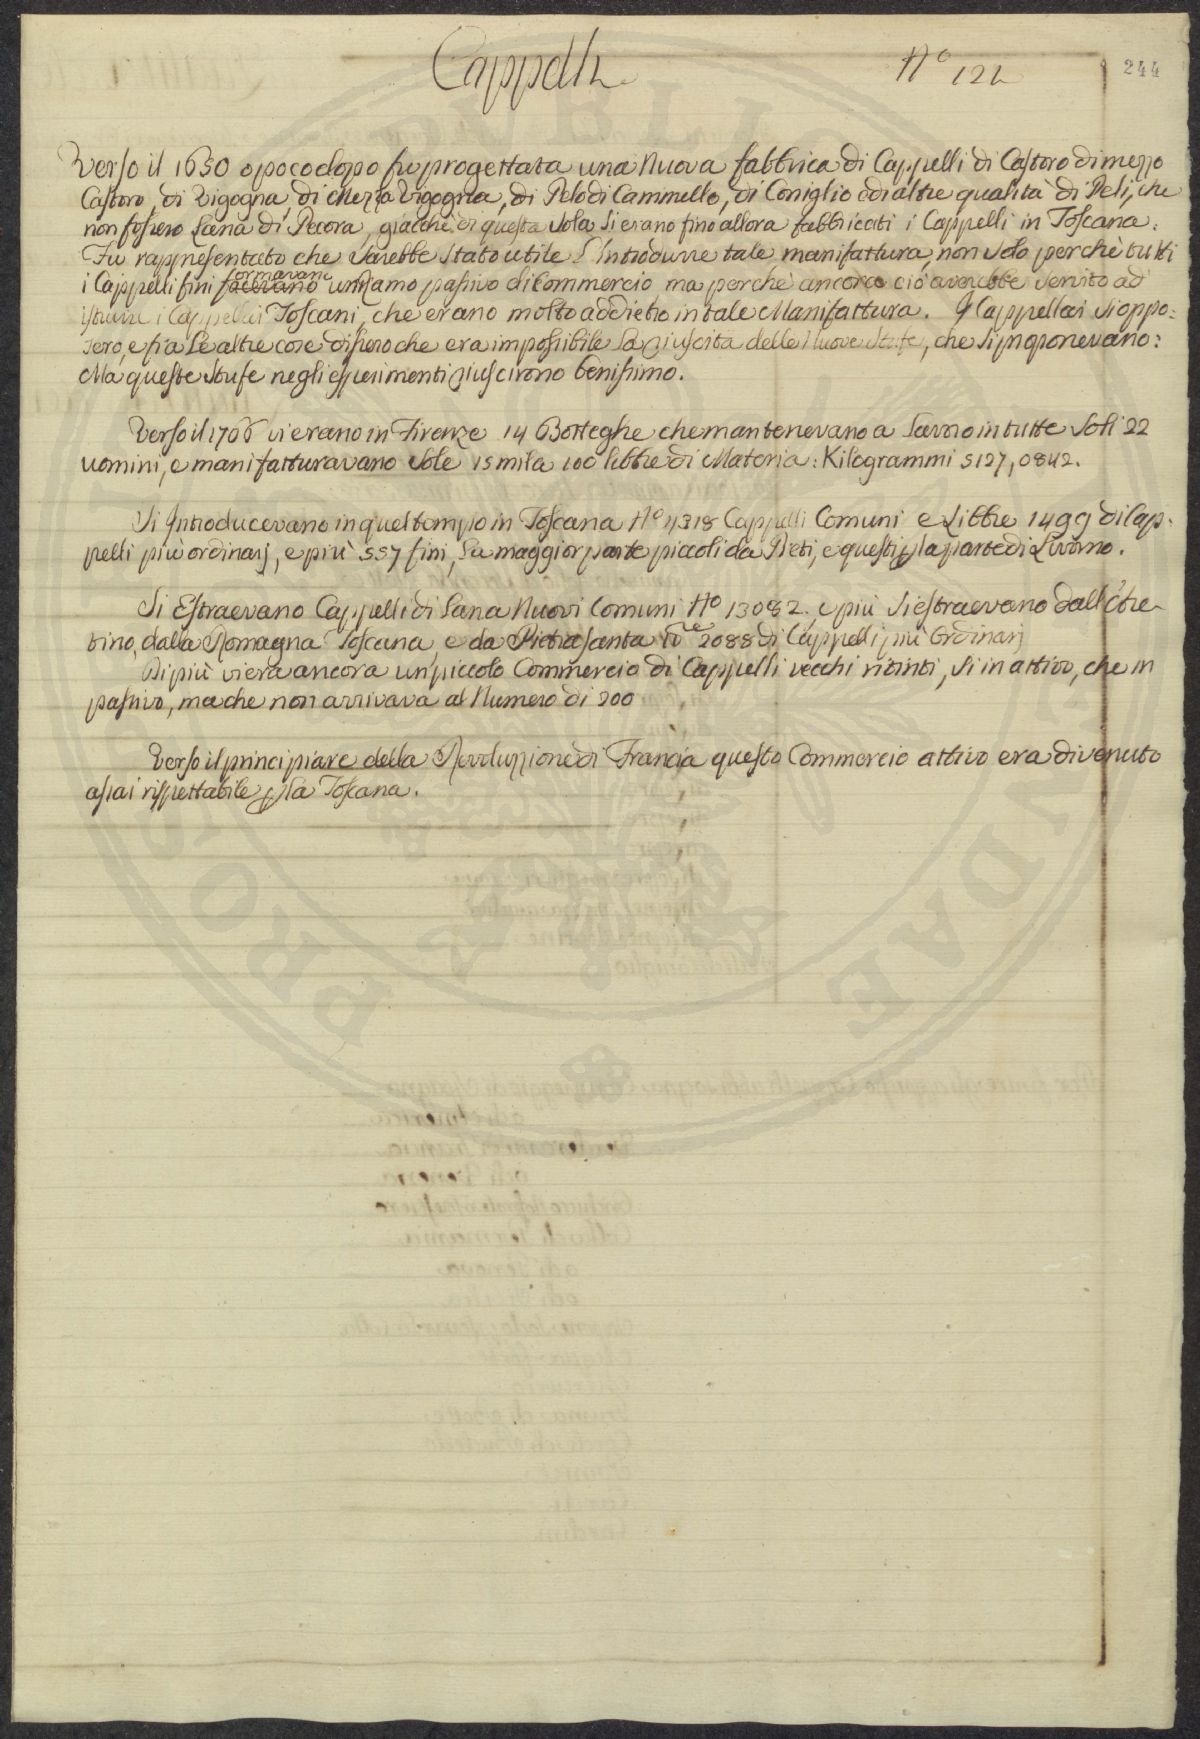 Cappelli
N.º 121
244
Verso il 1650 o poco dopo fu progettata una Nuova fabbrica di Cappelli di Castoro di mezzo
Castoro, di Vigogna, di Mezza Vigogna, di Pelo di Cammello, di Coniglio e di altre qualità di Peli, che
non fossero Lana di Pecora, giacchè di questa sola si erano fino allora fabbricati i Cappelli in Toscana.
Fu rappresentato che sarebbe stato utile l'introdurre tale manifattura, non solo perchè tutti
formavano
i Cappelli fini facevano un Ramo passivo di Commercio ma perchè ancora ciò averebbe servito ad
istruire i Cappellai Toscani, che erano molto addietro in tale Manifattura. I Cappellai si oppo:
sero, e fra le altre cose dissero che era impossibile la riuscita delle Nuove Stufe, che si proponevano:
Ma queste Stufe negli esperimenti riuscirono benissimo.
Verso il 1706 vi erano in Firenze 14 Botteghe che mantenevano a Lavoro in tutte Soli 22
uomini, e manifatturavano sole 15 mila 100 libbre di Materia: Kilogrammi 5127,0842.
Si Introducevano in quel tempo in Toscana N.º 4318 Cappelli Comuni e Libbre 1499 di Cap:
pelli più ordinarj, e più 557 fini, la maggior parte piccoli da Preti, e questi p la parte di Livorno.
Si Estraevano Cappelli di Lana Nuovi Comuni N.º 13082. e più si estraevano dall'Are-
tino, dalla Romagna Toscana, e da Pietrasanta 2088 di Cappelli più Ordinarj
Di più vi era ancora un piccolo Commercio di Cappelli vecchi ritinti, sì in attivo, che in
passivo, ma che non arrivava al Numero di 200
Verso il principiare della Rivoluzione di Francia questo Commercio attivo era divenuto
assai rispettabile p la Toscana.